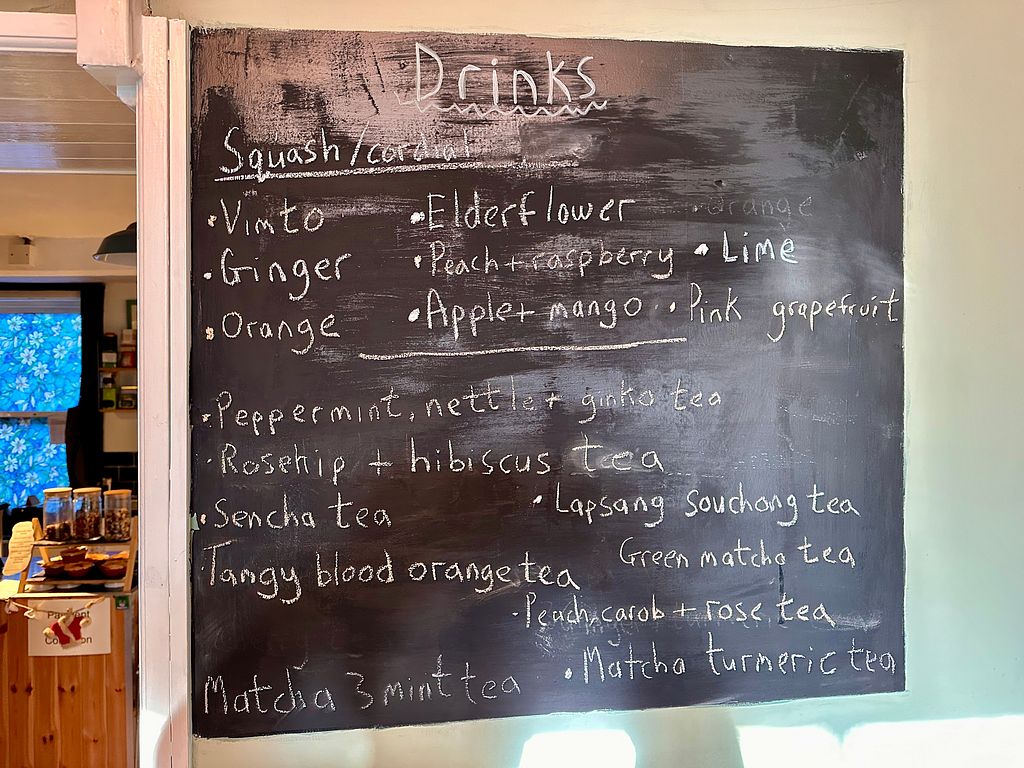 Drinks
Squash/cordial
•Vimto •Elderflower •Orange
•Ginger •Peach + raspberry •Lime
•Orange •Apple + mango •Pink grapefruit
•Peppermint, nettle + ginko tea
•Rosehip + hibiscus tea
•Sencha tea •Lapsang souchong tea
Tangy blood orange tea Green matcha tea
•Peach, carob + rose tea
Matcha 3 mint tea •Matcha turmeric tea